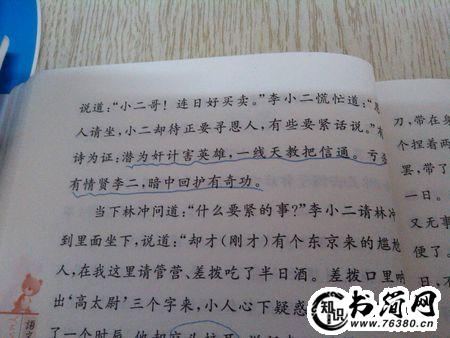 说道：“小二哥！连日好买卖。”李小二慌忙道：“恩
人请坐，小二却待正要寻恩人，有些要紧话说。”有
诗为证：潜为奸计害英雄，一线天教把信通。亏
有情贤李二，暗中回护有奇功。
当下林冲问道：“什么要紧的事？”李小二请林冲
到里面坐下，说道：“却才（刚才）有个东京来的尴尬
人，在我这里请管营、差拨吃了半日酒。差拨口里
出‘高太尉’三个字来，小人心下疑惑
了一个时辰
刀，带在身
个捏着两
罢，带了
一日。
又无事
便了。
日，不
语文
书简网
www.76380.cn